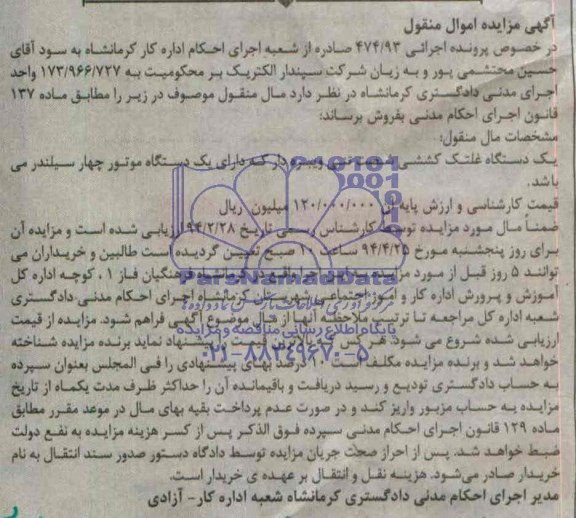 آگهی مزایده اموال منقول
در خصوص پرونده اجرائی ۴۷۴/۹۳ صادره از شعبه اجرای احکام اداره کار کرمانشاه به سود آقای
حسین محتشمی پور و به زیان شرکت سپندار الکتریک بر محکومیت به ۱۷۳/۹۶۶/۷۲۷ واحد
اجرای مدنی دادگستری کرمانشاه در نظر دارد مال منقول موصوف در زیر را مطابق ماده ۱۳۷
قانون اجرای احکام مدنی بفروش برساند؛
مشخصات مال منقول؛
یک دستگاه غلتک کششی ویبره دار که دارای یک دستگاه موتور چهار سیلندر می
باشد.
قیمت کارشناسی و ارزش پایه آن ۱۲۰/۰۰۰/۰۰۰ میلیون ریال
ضمناً مال مورد مزایده توسط کارشناس رسمی تاریخ ۹۴/۲/۲۸ ارزیابی شده است و مزایده آن
برای روز پنجشنبه مورخ ۹۴/۴/۲۵ ساعت ۱۰ صبح تعیین گردیده است طالبین و خریداران می
توانند ۵ روز قبل از مورد مزایده به این اجرا واقع در کرمانشاه فرهنگیان فاز ۱ ، کوچه اداره کل
آموزش و پرورش اداره کار و امور اجتماعی شهرستان کرمانشاه اجرای احکام مدنی دادگستری
شعبه اداره کل مراجعه تا ترتیب ملاحظه آنها از مال موضوع آگهی فراهم شود. مزایده از قیمت
ارزیابی شده شروع می شود. هر کس که بالاترین قیمت را پیشنهاد نماید برنده مزایده شناخته
خواهد شد و برنده مزایده مکلف است ۱۰ درصد بهای پیشنهادی را فی المجلس بعنوان سپرده
به حساب دادگستری تودیع و رسید دریافت و باقیمانده آن را حداکثر ظرف مدت یکماه از تاریخ
مزایده به حساب مزبور واریز کند و در صورت عدم پرداخت بقیه بهای مال در موعد مقرر مطابق
ماده ۱۲۹ قانون اجرای احکام مدنی سپرده فوق الذکر پس از کسر هزینه مزایده به نفع دولت
ضبط خواهد شد. پس از احراز صحت جریان مزایده توسط دادگاه دستور صدور سند انتقال به نام
خریدار صادر می‌شود. هزینه نقل و انتقال بر عهده ی خریدار است.
مدیر اجرای احکام مدنی دادگستری کرمانشاه شعبه اداره کار - آزادی
ParsNamadData
پایگاه اطلاع رسانی مناقصه و مزایده
۰۲۱-۸۸۳۴۹۶۷۰-۵